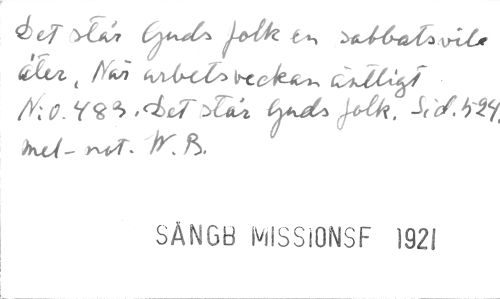 Det står Guds folk en sabbatsvila
åter, När arbetsveckan äntligt
N:o. 483. Det står Guds folk. Sid. 524.
mel-not. W. B.
SÅNGB MISSIONSF 1921